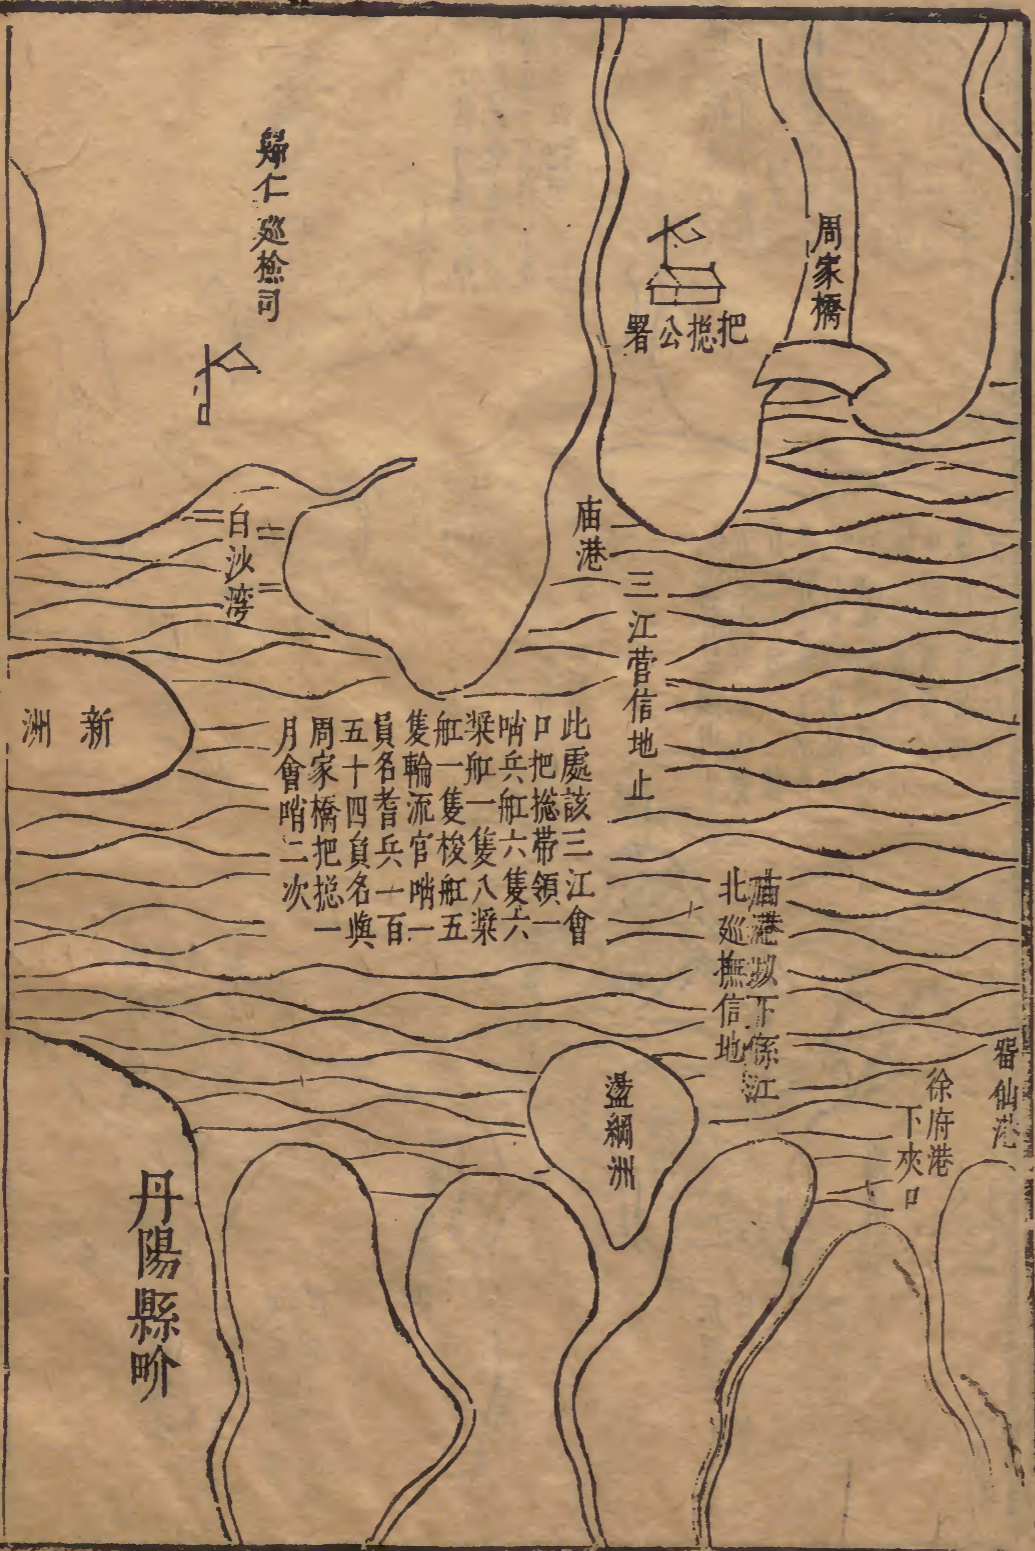 周家橋
把捴公署
歸仁廵檢司
庙港
三江营信地止
白沙湾
新洲
此處該三江會
口把捴帶領一
哨兵舡六隻六
槳舡一隻八槳
舡一隻梭舡五
隻輪流官哨一
員名耆兵一百
五十四負名與
周家橋把捴一
月會哨二次
庙港㳂下係江
北廵撫信地
畱仙港
徐府港
下夾口
盪網洲
丹陽縣界